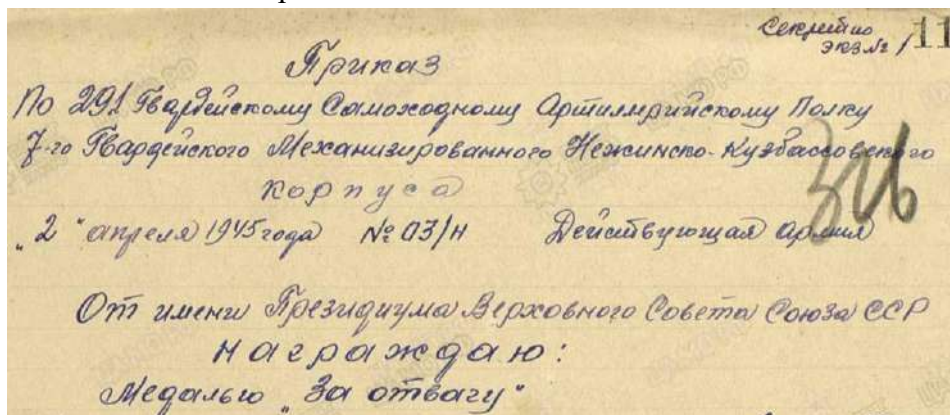 Секретно 11
экз № 1
Приказ
По 291 Гвардейскому Самоходному Артиллерийскому Полку
7-го Гвардейского Механизированного Нежинско-Кузбассовского
корпуса
"2" апреля 1945 года № 03/н Действующая армия
От имени Президиума Верховного Совета Союза ССР
награждаю:
Медалью "За отвагу"